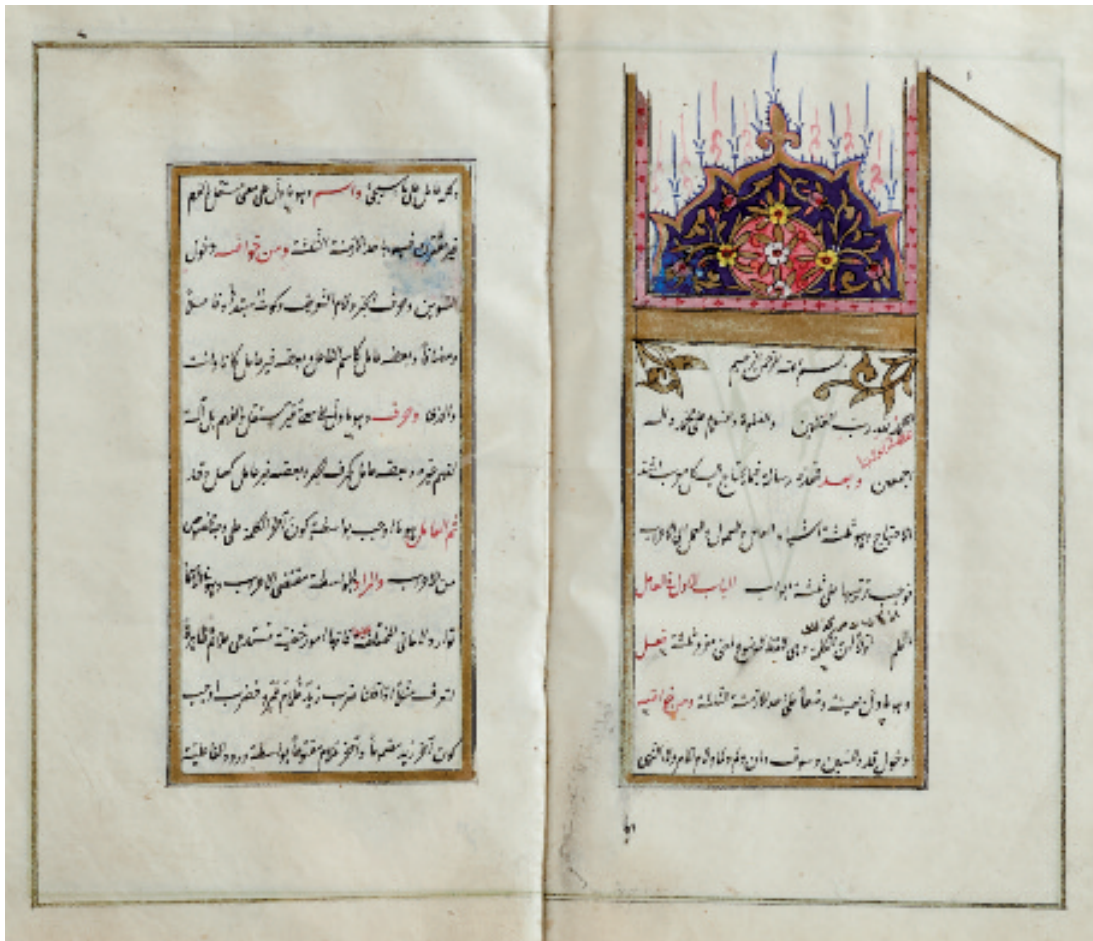 بسم الله الرحمن الرحيم
الحمد لله رب العالمين والصلوة والسلام على محمد وآله
اجمعين وبعد فهذه رسالة فيما يحتاج اليه كل معرب اشد
الاحتياج وهو ثلثة اشياء العامل والمعمول والعمل اى الاعراب
فوجب ترتيبها على ثلثة ابواب الباب الاول فى العامل
اعلم اولا ان الكلمة وهى اللفظ الموضوع لمعنى مفرد ثلثة فعل
وهو ما دل بهيئته وضعا على احد الازمنة الثلثة ومن خواصه
دخول قد والسين وسوف وان ولم ولما ولام الامر ولاء النهى
وكله عامل على ما سيجئ واسم وهو ما دل على معنى مستقل بالفهم
غير مقترن فيه باحد الازمنة الثلثة ومن خواصه دخول
التنوين وحرف الجر ولام التعريف وكونه مبتدأ وفاعلاً
ومضافاً وبعضه عامل كاسم الفاعل وبعضه غير عامل كانا وانت
والذى وحرف وهو ما دل على معنى غير مستقل بالفهم بل آلة
لفهم غيره وبعضه عامل كحرف الجر وبعضه غير عامل كهل وقد
ثم العامل هو ما اوجب بواسطة كون آخر الكلمة على وجه مخصوص
من الاعراب والمراد بالواسطة مقتضى الاعراب وهو فى الاسماء
توارد المعانى المختلفة فانها امور خفية تستدعى علائم ظاهرة
لتعرف مثلاً اذا قلنا ضرب زيد غلام عمرو فضرب اوجب
كون آخر زيد مضموماً وآخر غلام مفتوحاً بواسطة ورود الفاعلية